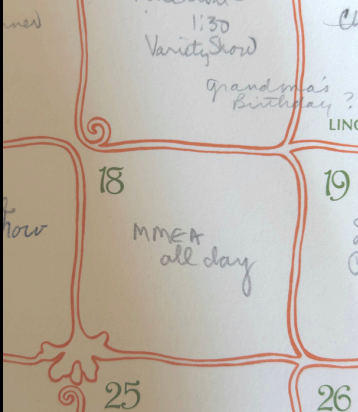 1:30
Variety Show
grandma's
Birthday ?
LINC
18
19
how
MMEA
all day
25
26